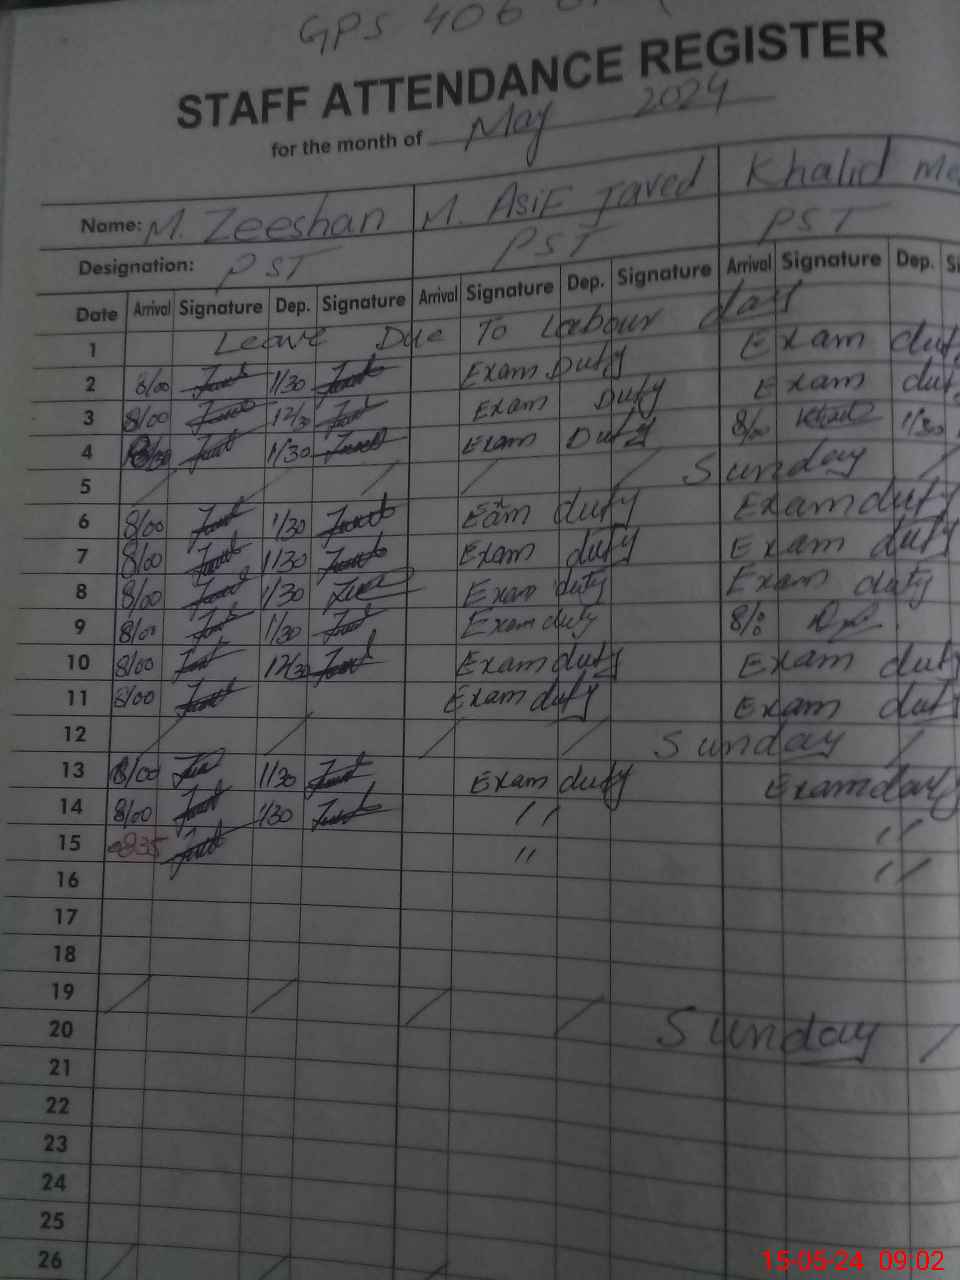 GPS 406
STAFF ATTENDANCE REGISTER
for the month of May 2024
Name: M. Zeeshan M. Asif Javed Khalid
Designation: PST PST PST
Date Arrival Signature Dep. Signature Arrival Signature Dep. Signature Arrival Signature Dep.
1 Leave Due To Labour day
2 8/00 1/30 Exam Duty Exam duty
3 8/00 12/30 Exam Duty Exam duty
4 1/30 Exam Duty 8/00 1/30
5 Sunday
6 8/00 1/30 Eam duty Exam duty
7 8/00 1/30 Exam duty Exam duty
8 8/00 1/30 Exam duty Exam duty
9 8/00 1/30 Exam duty 8/:
10 8/00 12/30 Exam duty Exam duty
11 8/00 Exam duty Exam duty
12 Sunday
13 8/00 1/30 Exam duty Exam duty
14 8/00 1/30 " "
15 835 " "
16
17
18
19 Sunday
20
21
22
23
24
25
26
15-05-24 09:02